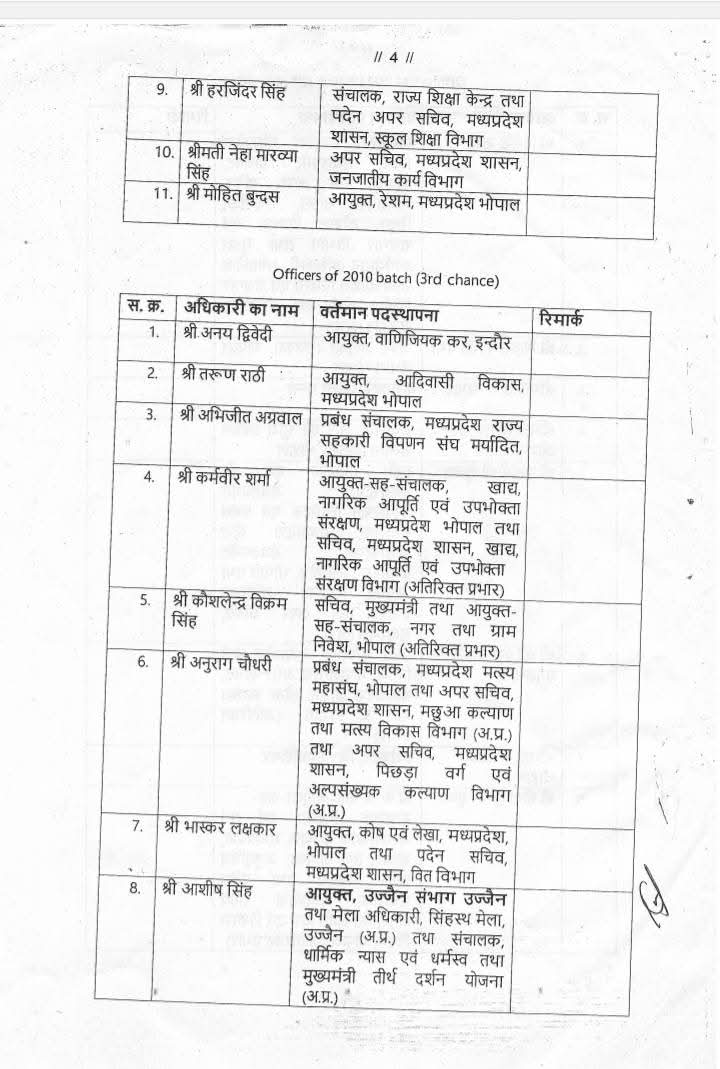 // 4 //
9. श्री हरजिंदर सिंह संचालक, राज्य शिक्षा केन्द्र तथा
पदेन अपर सचिव, मध्यप्रदेश
शासन, स्कूल शिक्षा विभाग
10. श्रीमती नेहा मारव्या अपर सचिव, मध्यप्रदेश शासन,
सिंह जनजातीय कार्य विभाग
11. श्री मोहित बुन्दस आयुक्त, रेशम, मध्यप्रदेश भोपाल
Officers of 2010 batch (3rd chance)
स. क्र. अधिकारी का नाम वर्तमान पदस्थापना रिमार्क
1. श्री अनय द्विवेदी आयुक्त, वाणिजियक कर, इन्दौर
2. श्री तरूण राठी आयुक्त, आदिवासी विकास,
मध्यप्रदेश भोपाल
3. श्री अभिजीत अग्रवाल प्रबंध संचालक, मध्यप्रदेश राज्य
सहकारी विपणन संघ मर्यादित,
भोपाल
4. श्री कर्मवीर शर्मा आयुक्त-सह-संचालक, खाद्य,
नागरिक आपूर्ति एवं उपभोक्ता
संरक्षण, मध्यप्रदेश भोपाल तथा
सचिव, मध्यप्रदेश शासन, खाद्य,
नागरिक आपूर्ति एवं उपभोक्ता
संरक्षण विभाग (अतिरिक्त प्रभार)
5. श्री कौशलेन्द्र विक्रम सचिव, मुख्यमंत्री तथा आयुक्त-
सिंह सह-संचालक, नगर तथा ग्राम
निवेश, भोपाल (अतिरिक्त प्रभार)
6. श्री अनुराग चौधरी प्रबंध संचालक, मध्यप्रदेश मत्स्य
महासंघ, भोपाल तथा अपर सचिव,
मध्यप्रदेश शासन, मछुआ कल्याण
तथा मत्स्य विकास विभाग (अ.प्र.)
तथा अपर सचिव, मध्यप्रदेश
शासन, पिछड़ा वर्ग एवं
अल्पसंख्यक कल्याण विभाग
(अ.प्र.)
7. श्री भास्कर लक्षकार आयुक्त, कोष एवं लेखा, मध्यप्रदेश,
भोपाल तथा पदेन सचिव,
मध्यप्रदेश शासन, वित विभाग
8. श्री आशीष सिंह आयुक्त, उज्जैन संभाग उज्जैन
तथा मेला अधिकारी, सिंहस्थ मेला,
उज्जैन (अ.प्र.) तथा संचालक,
धार्मिक न्यास एवं धर्मस्व तथा
मुख्यमंत्री तीर्थ दर्शन योजना
(अ.प्र.)